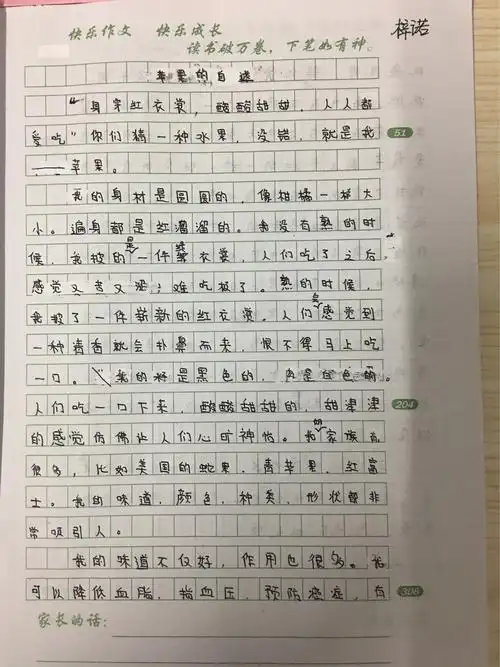 快乐作文 快乐成长
读书破万卷，下笔如有神。
梓诺
苹果的自述
“身穿红衣裳，酸酸甜甜，人人都
爱吃”你们猜一种水果，没错，就是我
51
——苹果。
我的身材是圆圆的，像柑橘一样大
小。遍身都是红溜溜的。我没有熟的时
候，我披的是一件衣裳，人们吃了之后，
感觉又苦又涩，难吃极了。熟的时候，
我披了一件崭新的红衣裳。人们会感觉到
一种清香就会扑鼻而来，恨不得马上吃
一口。我的籽是黑色的，肉是白色的。
人们吃一口下来，酸酸甜甜的，甜津津
204
的感觉仿佛让人们心旷神怡。我的家族有
很多，比如美国的蛇果，青苹果，红富
士。我的味道，颜色，种类，形状都非
常吸引人。
我的味道不仅好，作用也很多。我
可以降低血脂，指血压，预防癌症，有
306
家长的话：